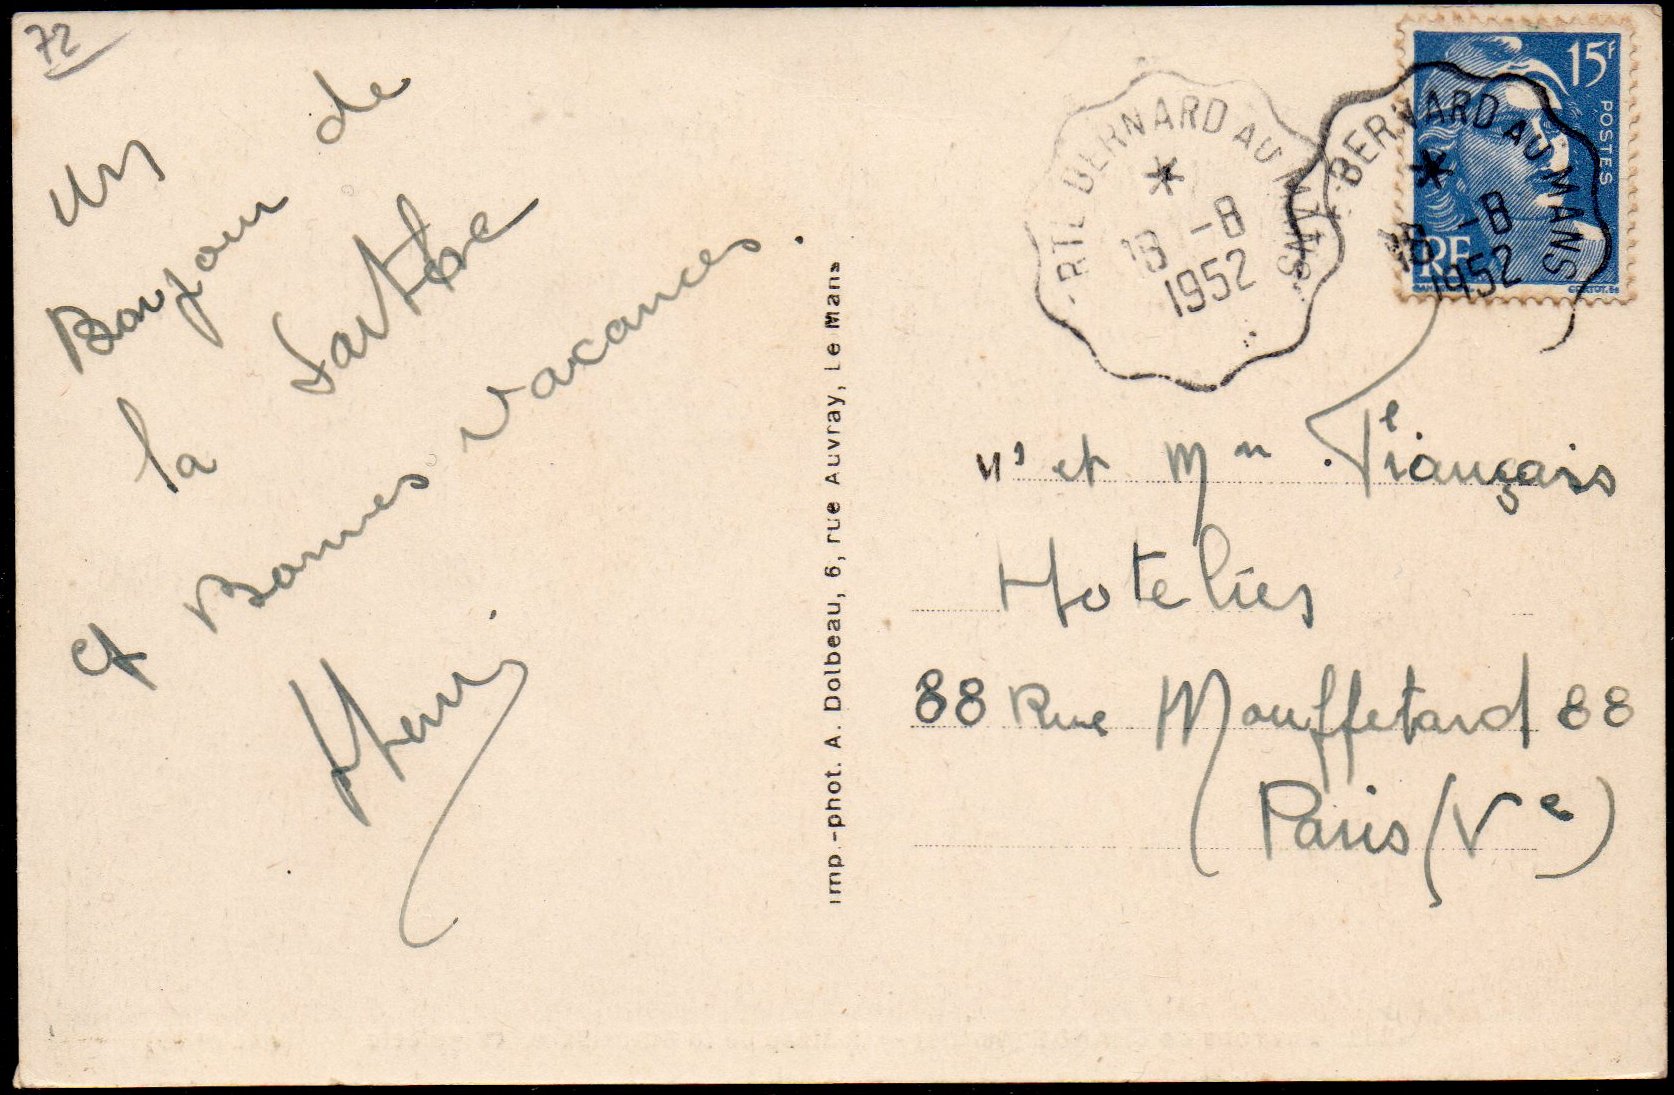 72
un
Bonjour de
la Sarthe
et Bonnes vacances.
Henri
Imp.-phot. A. Dolbeau, 6, rue Auvray, Le Mans
RTE BERNARD AU MANS
18 -8
1952
BERNARD AU MANS
18 -8
1952
15F
POSTES
RF
Mr et Mm Français
Hotelier
88 Rue Mouffetard 88
Paris (Ve)